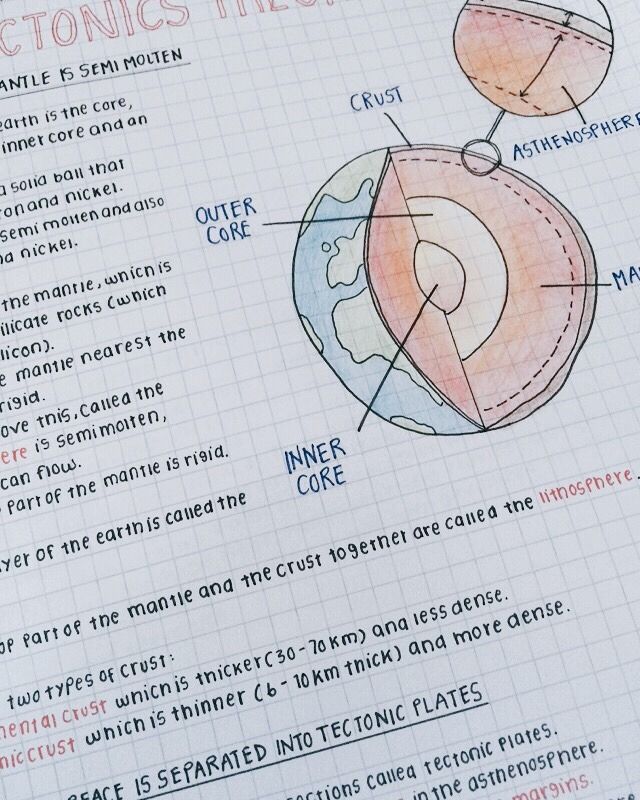 CTONICS THEO
ANTLE IS SEMI MOLTEN
earth is the core,
inner core and an
a solid ball that
ron and nickel.
semi molten and also
nd nickel.
the mantle, which is
ilicate rocks (which
licon).
e mantle nearest the
rigid.
ove this, called the
ere is semi molten,
can flow.
part of the mantle is rigid.
yer of the earth is called the
op part of the mantle and the crust together are called the lithosphere.
two types of crust:
nental crust which is thicker (30-70km) and less dense.
nic crust which is thinner (6-10km thick) and more dense.
RFACE IS SEPARATED INTO TECTONIC PLATES
ections called tectonic plates.
in the asthenosphere.
margins.
CRUST
ASTHENOSPHERE
OUTER
CORE
MA
INNER
CORE